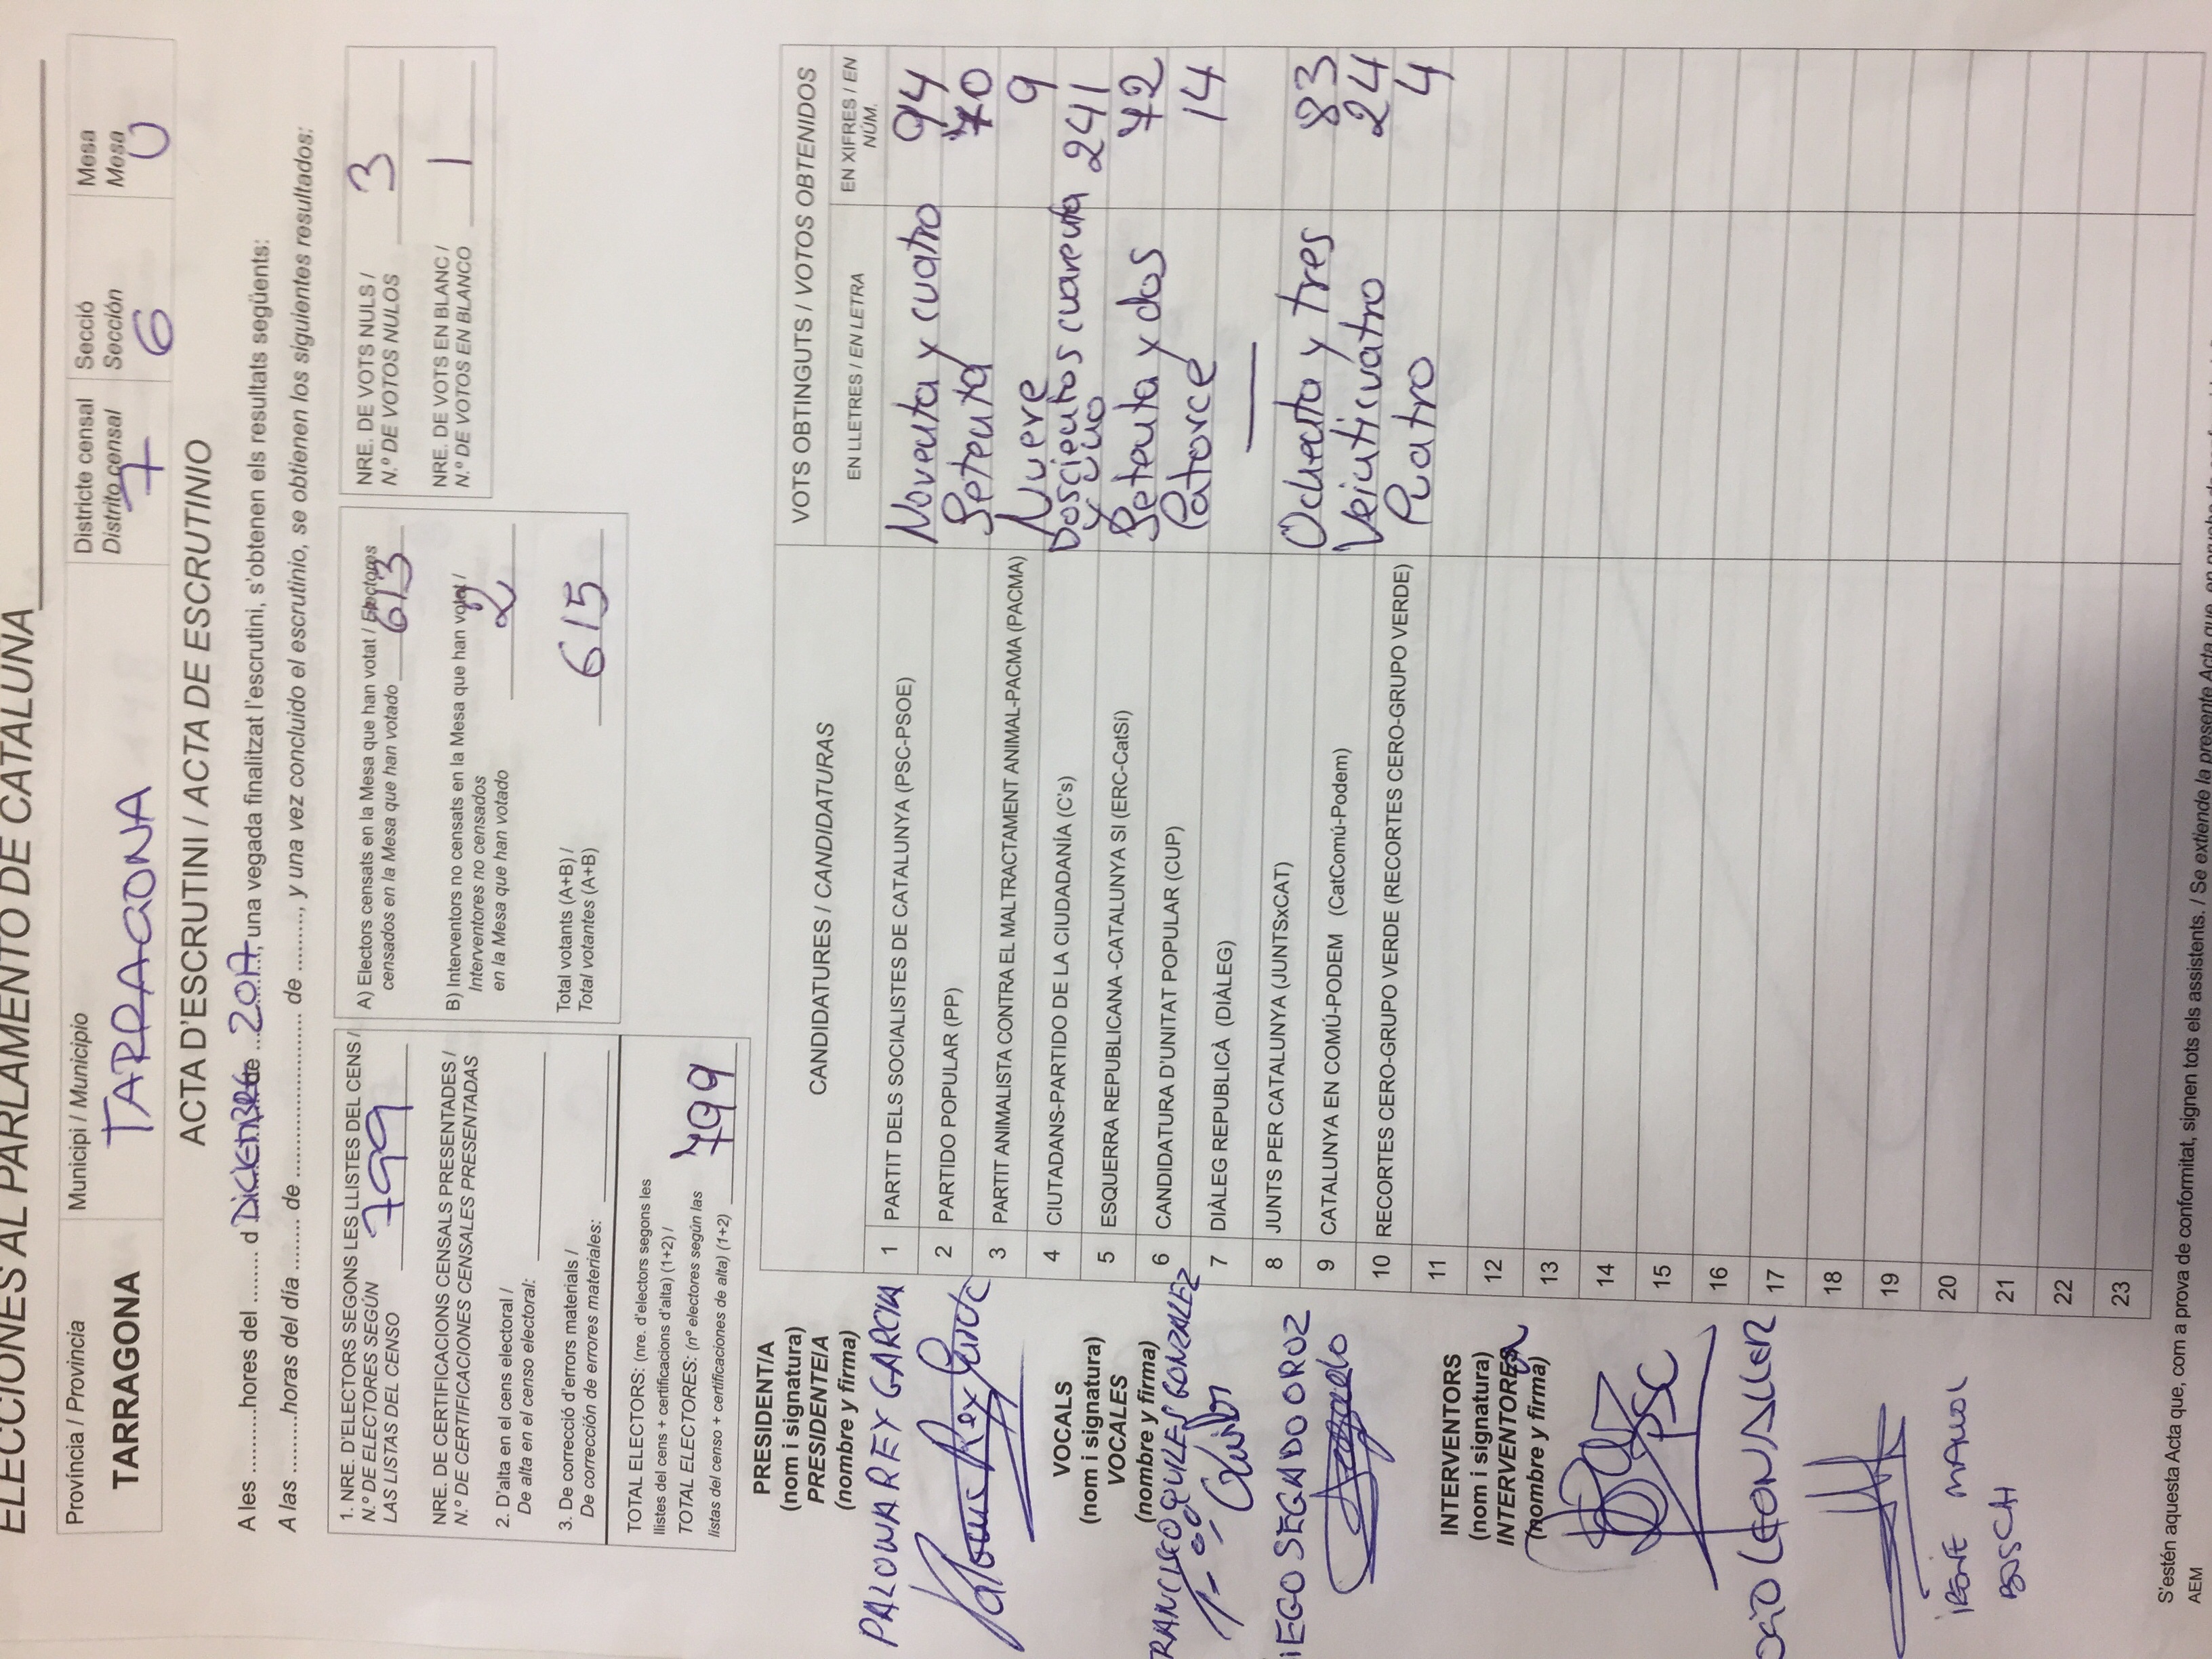 ELECCIONES AL PARLAMENTO DE CATALUÑA
Província / Provincia
TARRAGONA
Municipi / Municipio
TARRAGONA
Districte censal
Distrito censal
7
Secció
Sección
6
Mesa
Mesa
U
ACTA D'ESCRUTINI / ACTA DE ESCRUTINIO
A les ..........hores del ........ d DICIEMBRE de ... 2017, una vegada finalitzat l'escrutini, s'obtenen els resultats següents:
A las .........horas del día ........ de .......................... de ........., y una vez concluido el escrutinio, se obtienen los siguientes resultados:
1. NRE. D'ELECTORS SEGONS LES LLISTES DEL CENS /
N.º DE ELECTORES SEGÚN
LAS LISTAS DEL CENSO 799
NRE. DE CERTIFICACIONS CENSALS PRESENTADES /
N.º DE CERTIFICACIONES CENSALES PRESENTADAS
2. D'alta en el cens electoral /
De alta en el censo electoral:
3. De correcció d'errors materials /
De corrección de errores materiales:
TOTAL ELECTORS: (nre. d'electors segons les
llistes del cens + certificacions d'alta) (1+2) /
TOTAL ELECTORES: (nº electores según las
listas del censo + certificaciones de alta) (1+2) 799
A) Electors censats en la Mesa que han votat / Electores
censados en la Mesa que han votado 613
B) Interventors no censats en la Mesa que han votat /
Interventores no censados
en la Mesa que han votado 2
Total votants (A+B) /
Total votantes (A+B) 615
NRE. DE VOTS NULS /
N.º DE VOTOS NULOS 3
NRE. DE VOTS EN BLANC /
N.º DE VOTOS EN BLANCO 1
PRESIDENT/A
(nom i signatura)
PRESIDENTE/A
(nombre y firma)
PALOMA REY GARCIA
Paloma Rey Garcia
VOCALS
(nom i signatura)
VOCALES
(nombre y firma)
RANCISCO QUILES GONZALEZ
Quiles
IEGO SEGADO OROZ
Segado
INTERVENTORS
(nom i signatura)
INTERVENTORES
(nombre y firma)
PSC
LEON ALLER
IRENE MALLOL
BOSCH
CANDIDATURES / CANDIDATURAS
VOTS OBTINGUTS / VOTOS OBTENIDOS
EN LLETRES / EN LETRA
EN XIFRES / EN
NÚM.
1 PARTIT DELS SOCIALISTES DE CATALUNYA (PSC-PSOE) Noventa y cuatro 94
2 PARTIDO POPULAR (PP) Setenta 70
3 PARTIT ANIMALISTA CONTRA EL MALTRACTAMENT ANIMAL-PACMA (PACMA) Nueve 9
4 CIUTADANS-PARTIDO DE LA CIUDADANÍA (C's) Doscientos cuarenta
y uno 241
5 ESQUERRA REPUBLICANA -CATALUNYA SI (ERC-CatSí) Setenta y dos 72
6 CANDIDATURA D'UNITAT POPULAR (CUP) Catorce 14
7 DIÀLEG REPUBLICÀ (DIÀLEG) —
8 JUNTS PER CATALUNYA (JUNTSxCAT) Ochenta y tres 83
9 CATALUNYA EN COMÚ-PODEM (CatComú-Podem) Veinticuatro 24
10 RECORTES CERO-GRUPO VERDE (RECORTES CERO-GRUPO VERDE) Cuatro 4
11
12
13
14
15
16
17
18
19
20
21
22
23
S'estén aquesta Acta que, com a prova de conformitat, signen tots els assistents. / Se extiende la presente Acta que, en prueba de
AEM